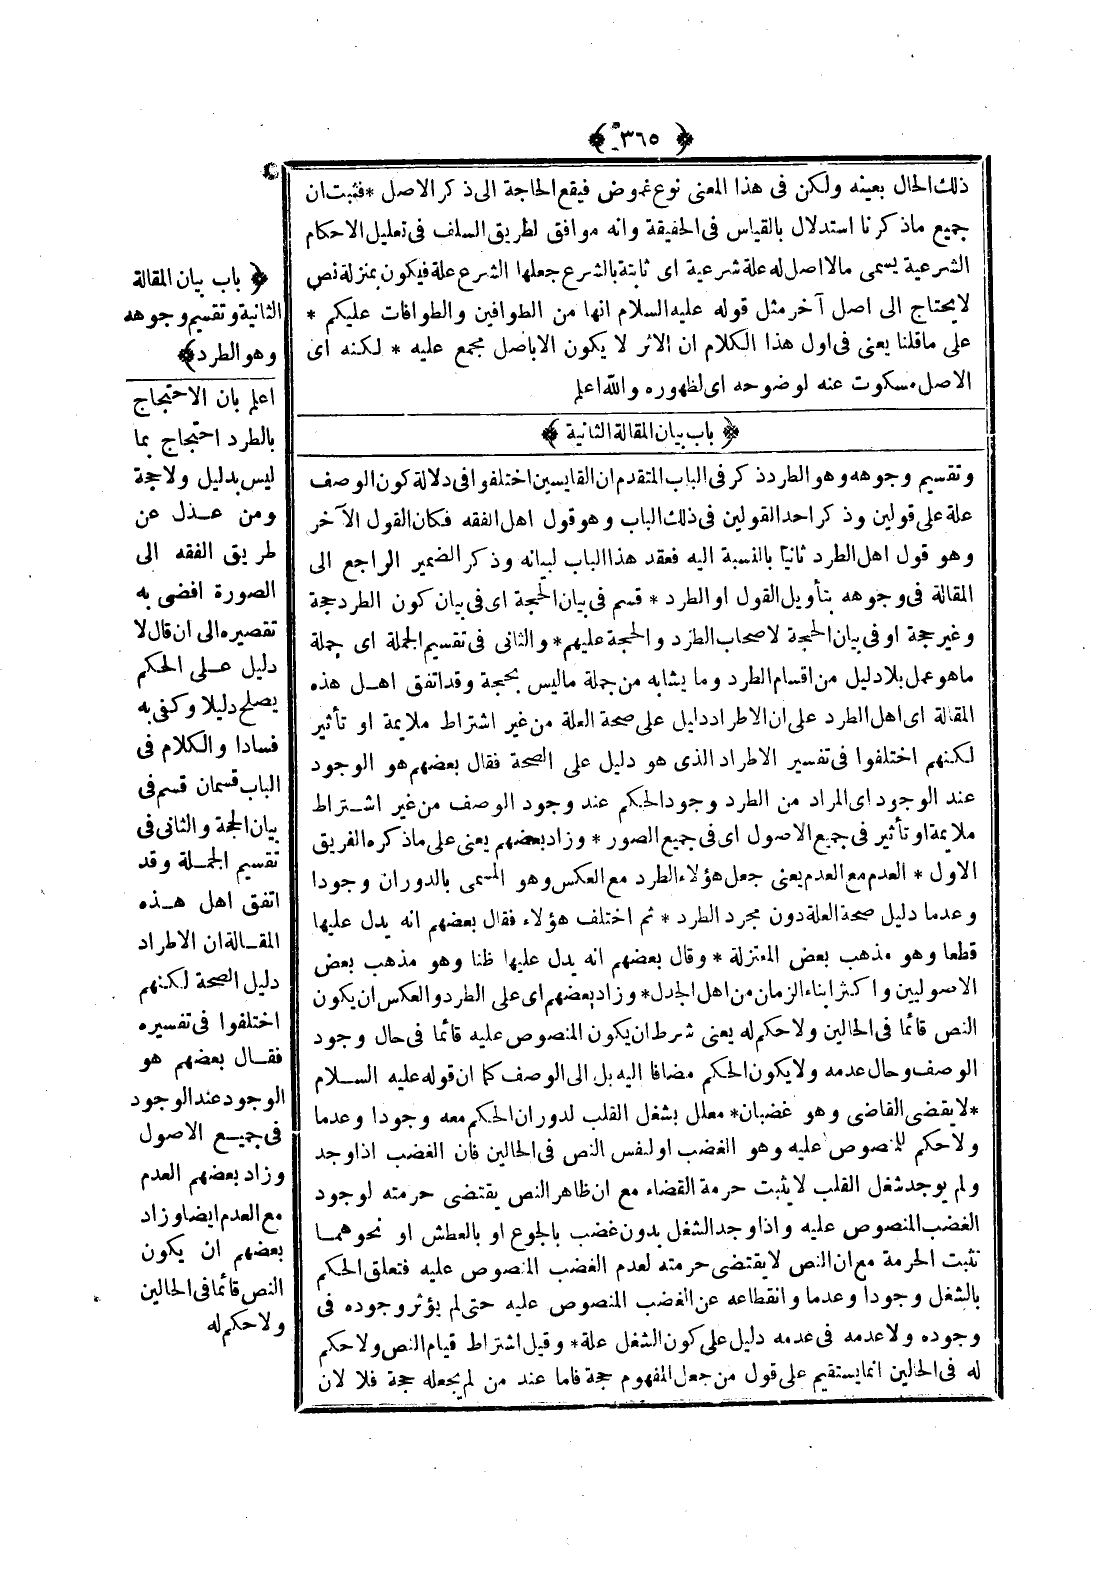 ﴿ ٣٦٥ ﴾
ذلك الحال بعينه ولكن فى هذا المعنى نوع غموض فيقع الحاجة الى ذكر الاصل * فثبت ان
جميع ماذكرنا استدلال بالقياس فى الحقيقة وانه موافق لطريق السلف فى تعليل الاحكام
الشرعية يسمى مالا اصل له علة شرعية اى ثابتة بالشرع جعلها الشرع علة فيكون بمنزلة نص
لايحتاج الى اصل آخر مثل قوله عليه السلام انها من الطوافين والطوافات عليكم *
على ماقلنا يعنى فى اول هذا الكلام ان الاثر لا يكون الاباصل مجمع عليه * لكنه اى
الاصل مسكوت عنه لوضوحه اى لظهوره والله اعلم
﴿ باب بيان المقالة الثانية ﴾
وتقسيم وجوهه وهو الطرد ذكر فى الباب المتقدم ان القايسين اختلفوا فى دلالة كون الوصف
علة على قولين وذكر احد القولين فى ذلك الباب وهو قول اهل الفقه فكان القول الآخر
وهو قول اهل الطرد ثانيا بالنسبة اليه فعقد هذا الباب لبيانه وذكر الضمير الراجع الى
المقالة فى وجوهه بتأويل القول او الطرد * قسم فى بيان الحجة اى فى بيان كون الطرد حجة
وغير حجة او فى بيان الحجة لاصحاب الطرد والحجة عليهم * والثانى فى تقسيم الجملة اى جملة
ماهو عمل بلا دليل من اقسام الطرد وما يشابه من جملة ماليس بحجة وقد اتفق اهل هذه
المقالة اى اهل الطرد على ان الاطراد دليل على صحة العلة من غير اشتراط ملايمة او تأثير
لكنهم اختلفوا فى تفسير الاطراد الذى هو دليل على الصحة فقال بعضهم هو الوجود
عند الوجود اى المراد من الطرد وجود الحكم عند وجود الوصف من غير اشتراط
ملايمة او تأثير فى جميع الاصول اى فى جميع الصور * وزاد بعضهم يعنى على ماذكره الفريق
الاول * العدم مع العدم يعنى جعل هؤلاء الطرد مع العكس وهو المسمى بالدوران وجودا
وعدما دليل صحة العلة دون مجرد الطرد * ثم اختلف هؤلاء فقال بعضهم انه يدل عليها
قطعا وهو مذهب بعض المعتزلة * وقال بعضهم انه يدل عليها ظنا وهو مذهب بعض
الاصوليين واكثر ابناء الزمان من اهل الجدل * وزاد بعضهم اى على الطرد والعكس ان يكون
النص قائما فى الحالين ولاحكم له يعنى شرط ان يكون المنصوص عليه قائما فى حال وجود
الوصف وحال عدمه ولايكون الحكم مضافا اليه بل الى الوصف كما ان قوله عليه السلام
* لايقضى القاضى وهو غضبان * معلل بشغل القلب لدوران الحكم معه وجودا وعدما
ولاحكم للمنصوص عليه وهو الغضب اولنفس النص فى الحالين فان الغضب اذا وجد
ولم يوجد شغل القلب لا يثبت حرمة القضاء مع ان ظاهر النص يقتضى حرمته لوجود
الغضب المنصوص عليه واذا وجد الشغل بدون غضب بالجوع او بالعطش او نحوهما
تثبت الحرمة مع ان النص لايقتضى حرمته لعدم الغضب المنصوص عليه فتعلق الحكم
بالشغل وجودا وعدما وانقطاعه عن الغضب المنصوص عليه حتى لم يؤثر وجوده فى
وجوده ولاعدمه فى عدمه دليل على كون الشغل علة * وقيل اشتراط قيام النص ولاحكم
له فى الحالين انما يستقيم على قول من جعل المفهوم حجة فاما عند من لم يجعله حجة فلا لان
﴿ باب بيان المقالة
الثانية وتقسيم وجوهه
وهو الطرد ﴾
اعلم بان الاحتجاج
بالطرد احتجاج بما
ليس بدليل ولاحجة
ومن عدل عن
طريق الفقه الى
الصورة افضى به
تقصيره الى ان قال لا
دليل على الحكم
يصلح دليلا وكفى به
فسادا والكلام فى
الباب قسمان قسم فى
بيان الحجة والثانى فى
تقسيم الجملة وقد
اتفق اهل هذه
المقالة ان الاطراد
دليل الصحة لكنهم
اختلفوا فى تفسيره
فقال بعضهم هو
الوجود عند الوجود
فى جميع الاصول
وزاد بعضهم العدم
مع العدم ايضا وزاد
بعضهم ان يكون
النص قائما فى الحالين
ولاحكم له